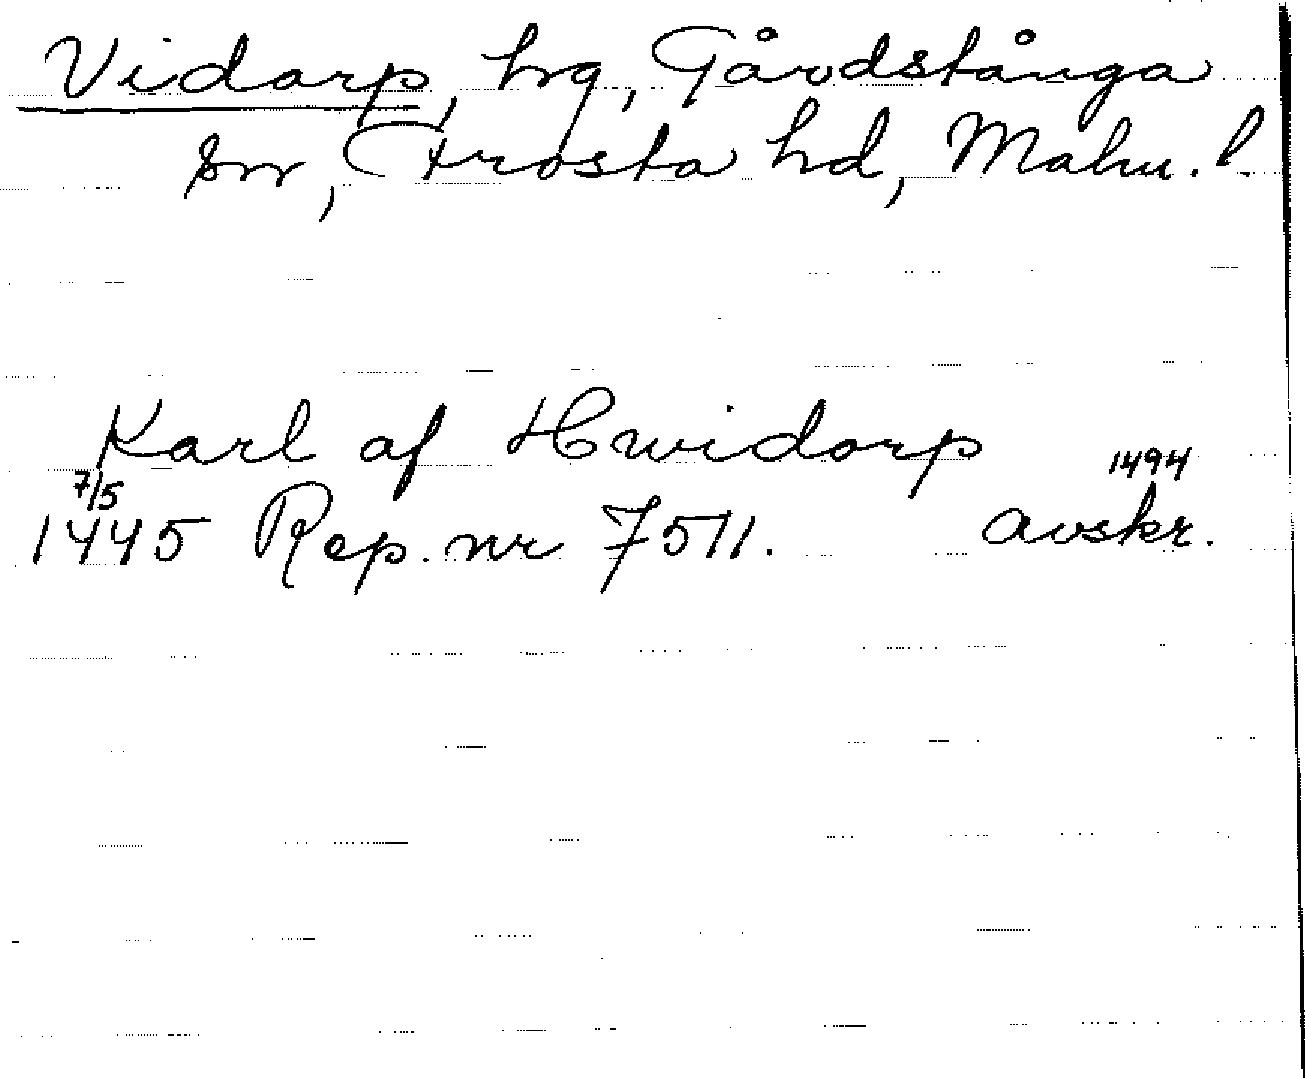 Vidarp, hg, Gårdstånga
sn, Frosta hd, Malm. l.
Karl af Hwidarp
7/5 1494
1445 Rep. nr 7511. avskr.